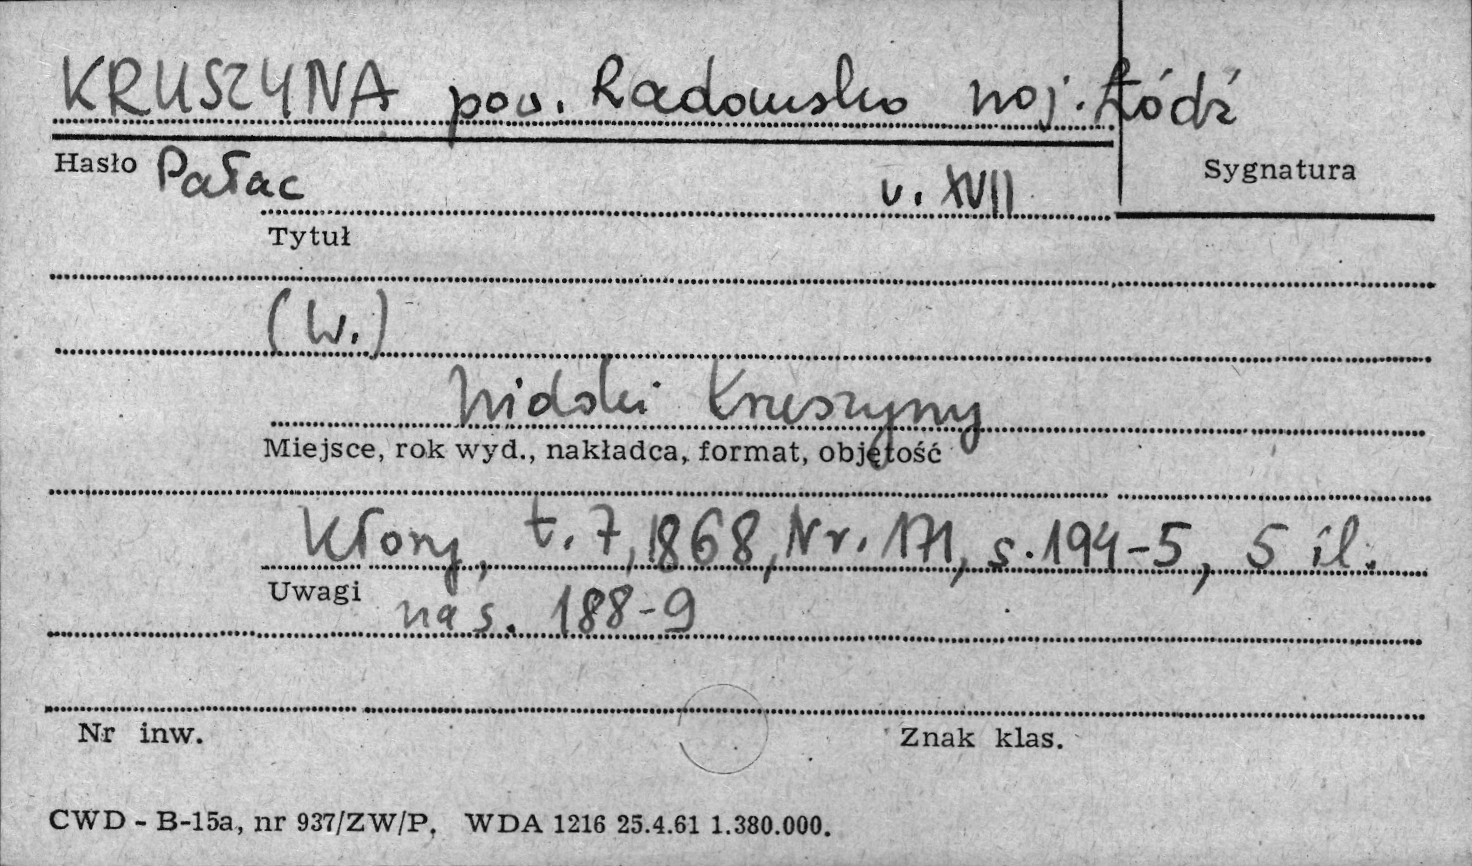 KRUSZYNA pow. Radomsko woj. Łódź
Hasło Pałac w. XVII
Sygnatura
Tytuł
(W.)
Widoki Kruszyny
Miejsce, rok wyd., nakładca, format, objętość
Kłosy, t. 7, 1868, Nr. 171, s. 194-5, 5 il.
Uwagi na s. 188-9
Nr inw. Znak klas.
CWD - B-15a, nr 937/ZW/P. WDA 1216 25.4.61 1.380.000.